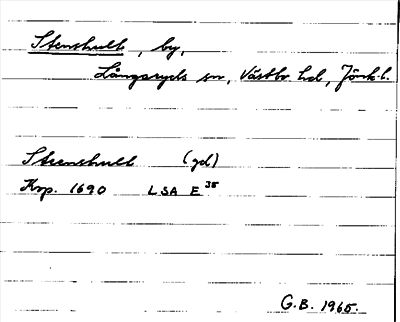 Stenshult, by,
Långaryds sn, Västbo hd, Jönk. l.
Steenshult (gd)
Knp. 1690 LSA E 35
G.B. 1965.